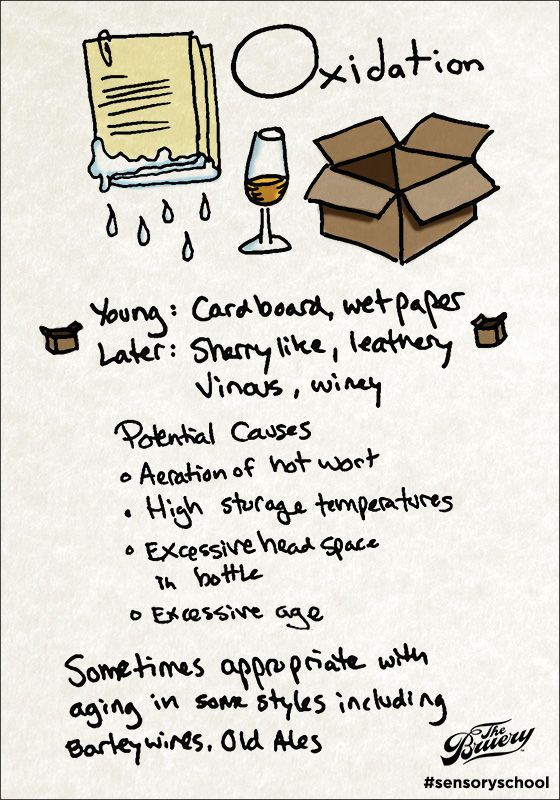 Oxidation
Young: Cardboard, wet paper
Later: Sherry like, leathery
Vinous, winey
Potential Causes
• Aeration of hot wort
• High storage temperatures
• Excessive head space
in bottle
• Excessive age
Sometimes appropriate with
aging in some styles including
Barleywines, Old Ales
The
Bruery
#sensoryschool